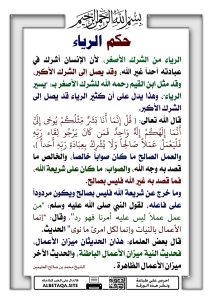 بسم الله الرحمن الرحيم
حكم الرياء
الرياء من الشرك الأصغر، لأن الإنسان أشرك في
عبادته أحدا غير الله، وقد يصل إلى الشرك الأكبر،
وقد مثل ابن القيم رحمه الله للشرك الأصغر بـ: "يسير
الرياء"، وهذا يدل على أن كثير الرياء قد يصل إلى
الشرك الأكبر.
قال الله تعالى: ﴿ قُلْ إِنَّمَا أَنَا بَشَرٌ مِّثْلُكُمْ يُوحَىٰ إِلَيَّ
أَنَّمَا إِلَٰهُكُمْ إِلَٰهٌ وَاحِدٌ فَمَن كَانَ يَرْجُو لِقَاءَ رَبِّهِ
فَلْيَعْمَلْ عَمَلًا صَالِحًا وَلَا يُشْرِكْ بِعِبَادَةِ رَبِّهِ أَحَدًا ﴾،
والعمل الصالح ما كان صوابا خالصا، والخالص ما
قصد به وجه الله، والصواب: ما كان على شريعة الله.
فما قصد به غير الله فليس بصالح،
وما خرج عن شريعة الله فليس بصالح ويكون مردودا
على فاعله، لقول النبي صلى الله عليه وسلم: "من
عمل عملا ليس عليه أمرنا فهو رد"، وقال: "إنما
الأعمال بالنيات وإنما لكل امرئ ما نوى" الحديث.
قال بعض العلماء: هذان الحديثان ميزان الأعمال،
فحديث النية ميزان الأعمال الباطنة، والحديث الآخر
ميزان الأعمال الظاهرة.
الشيخ محمد بن صالح العثيمين
ALBETAQA.SITE